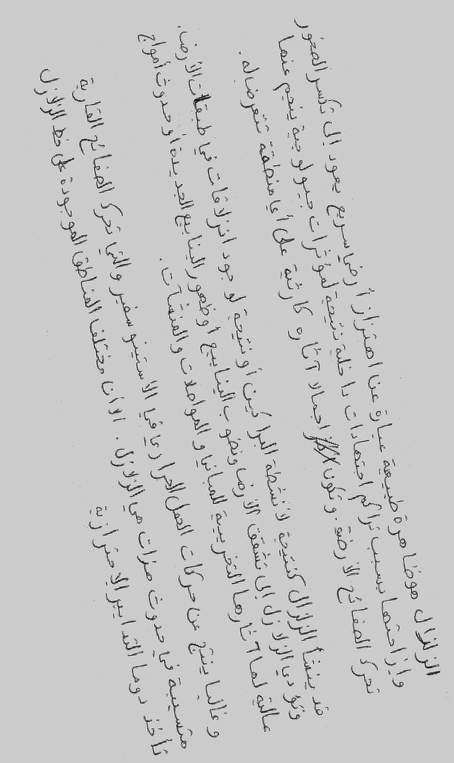 الزلزال هو ظاهرة طبيعة عبارة عن اهتزاز أرضي سريع يعود إلى تكسر الصخور
وإزاحتها بسبب تراكم اجتهادات داخلية نتيجة لمؤثرات جيولوجية ينجم عنها
تحرك الصفائح الأرضية. وتكون اجمالا آثاره كارثية على أي منطقة تتعرض له.
قد ينشأ الزلزال كنتيجة لأنشطة البراكين أو نتيجة لوجود انزلاقات في طبقات الأرض.
وتؤدي الزلازل إلى تشقق الأرض ونضوب الينابيع أو ظهور الينابيع الجديدة أو حدوث أمواج
عالية لما آثارها التخريبية للمباني والمواصلات والمنشآت.
وغالبا ينتج عن حركات الحمل الحراري في الأستينوسفير والتي تحرك الصفائح القارية
متسببة في حدوث هزات هي الزلازل. الا أن مختلف المناطق الموجودة على خط الزلازل
تأخذ دوما التدابير الإحترازية